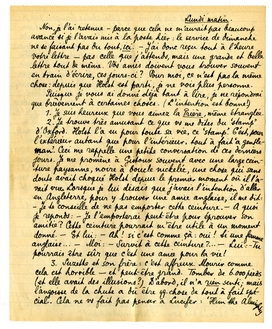 Lundi matin.
Non, je l'ai retenue - parce que cela ne m'aurait pas beaucoup
avancé si je l'avais mis à la poste hier: le service de dimanche
ne se faisant pas du tout, ici. - J'ai donc reçu tout à l'heure
votre lettre - pas celle que j'attends, mais une grande et belle
lettre tout de même. Vos amies doivent vous trouver souvent
en train d'écrire, ces jours-ci? Pour moi, ce n'est pas la même
chose: depuis que Holst est parti, je ne vois plus personne.
Puisque je vous ai donné déjà tant à lire, je ne répondrai
que brèvement à certaines choses. (L'intention est bonne!)
1. Je suis heureux que vous aimez la Prose, même étranglée.
2. Je trouve très amusant ce que vous me dites du 'stamp'
d'Oxford. Holst l'a eu pour toute sa vie, ce 'stamp'. C'est, pour
l'extérieur autant que pour l'intérieur, tout à fait le gentle-
man! Ceci me rappelle une petite conversation de ces derniers
jours. Je me promène à Gistoux avec une large cein-
ture paysanne, noire à boucle nickelée, mon choix
avait choqué Holst depuis le premier moment où il l'a-
vait vue. Lorsque je lui disais que j'avais l'intention d'aller
en Angleterre, pour y trouver une amie anglaise, il me dit:
- Je te conseille de ne pas emporter cette ceinture. - A quoi
je réponds: - Je l'emporterai peut être pour éprouver son
amitié? Cette ceinture pourrait m'être utile à un moment
donné. - Et lui: - Ah! si c'est comme ça: oui! Si une femme
anglaise... - Moi: - Survit à cette ceinture?... - Lui: - Tu
pourrais être sûr que c'est une amie pour la vie!
3. Suzette et son frère: c'est affreux. Mourir comme
cela est horrible - et peut être grand. Tomber de 6.000 pieds
(et elle avait des illusions) D'abord, il n'a rien senti; mais
l'angoisse de la chute a du être qq-chose de tout à fait spé-
cial. Cela ne vs fait pas penser à Lucifer: 'Him the Almigh